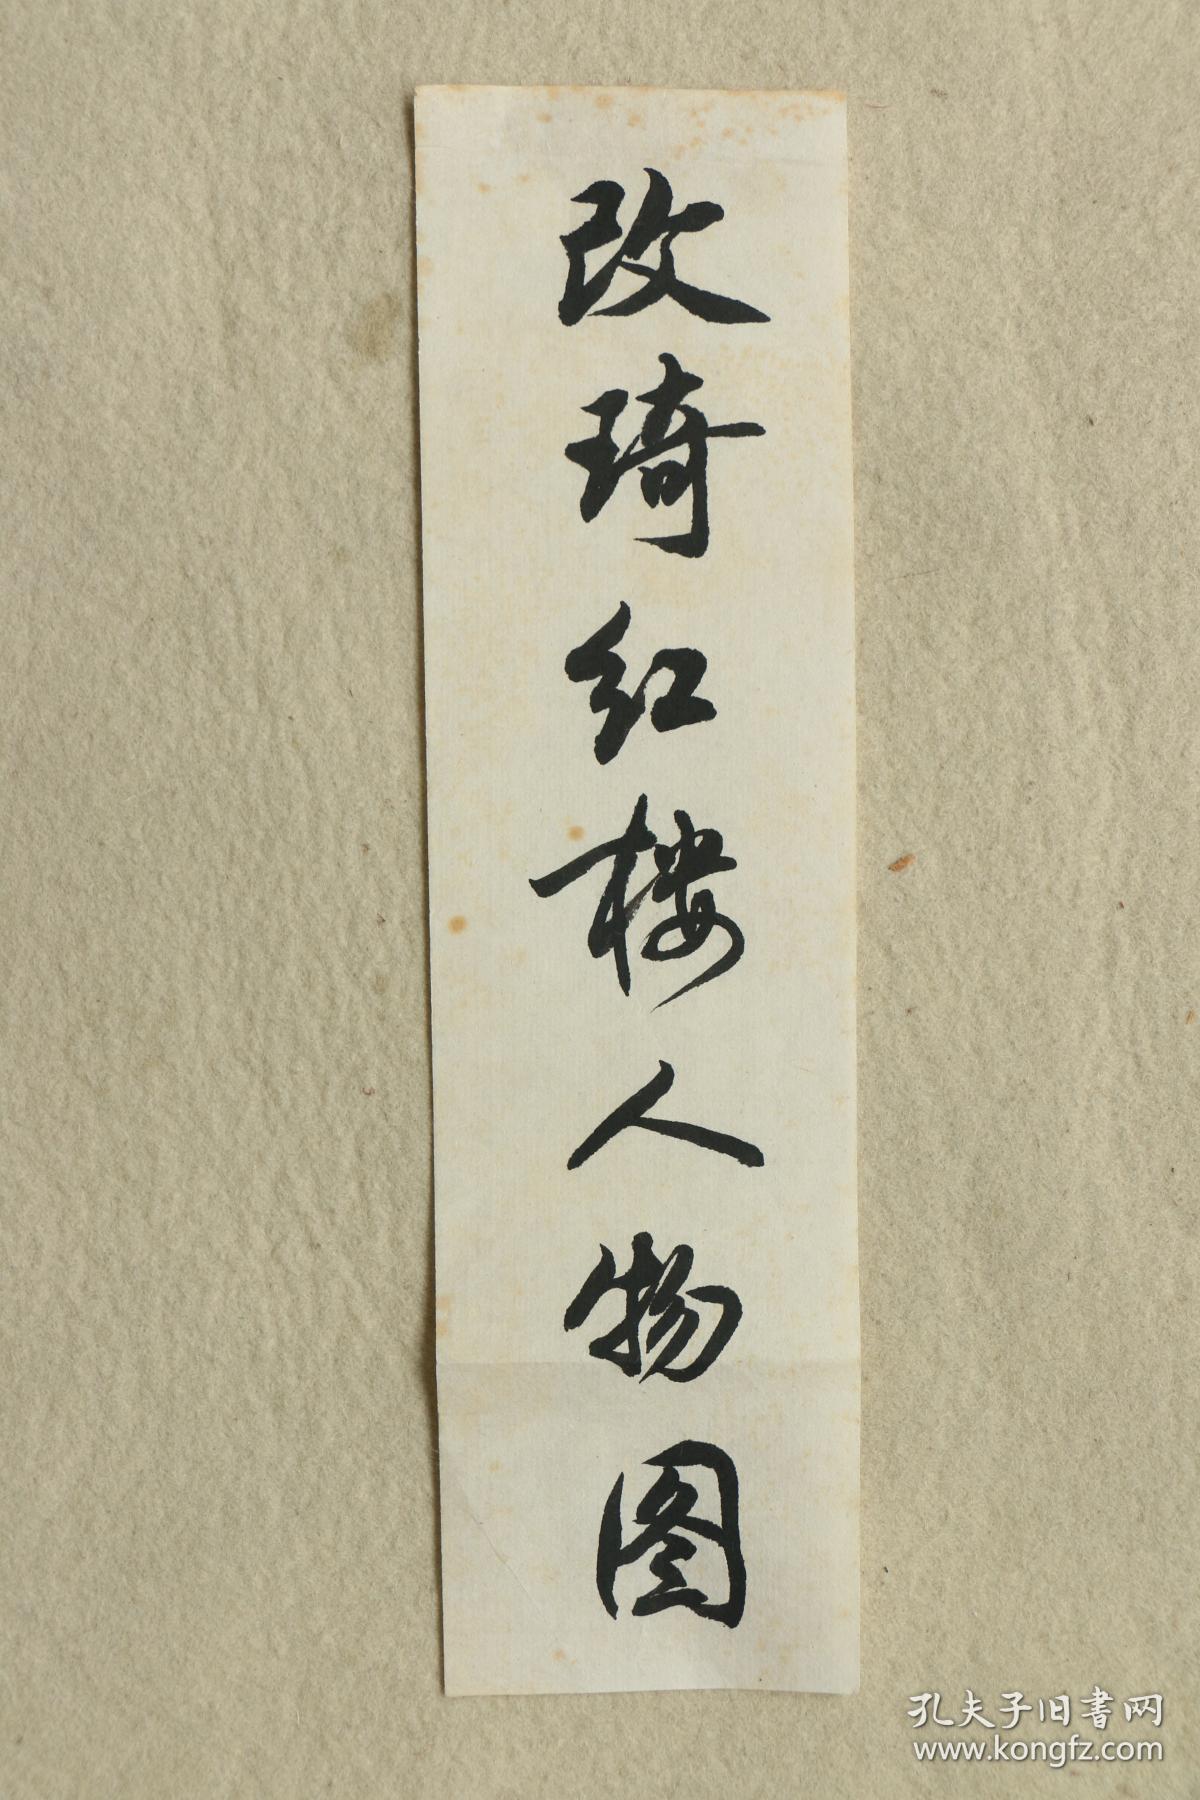 改琦红楼人物图
孔夫子旧书网
www.kongfz.com